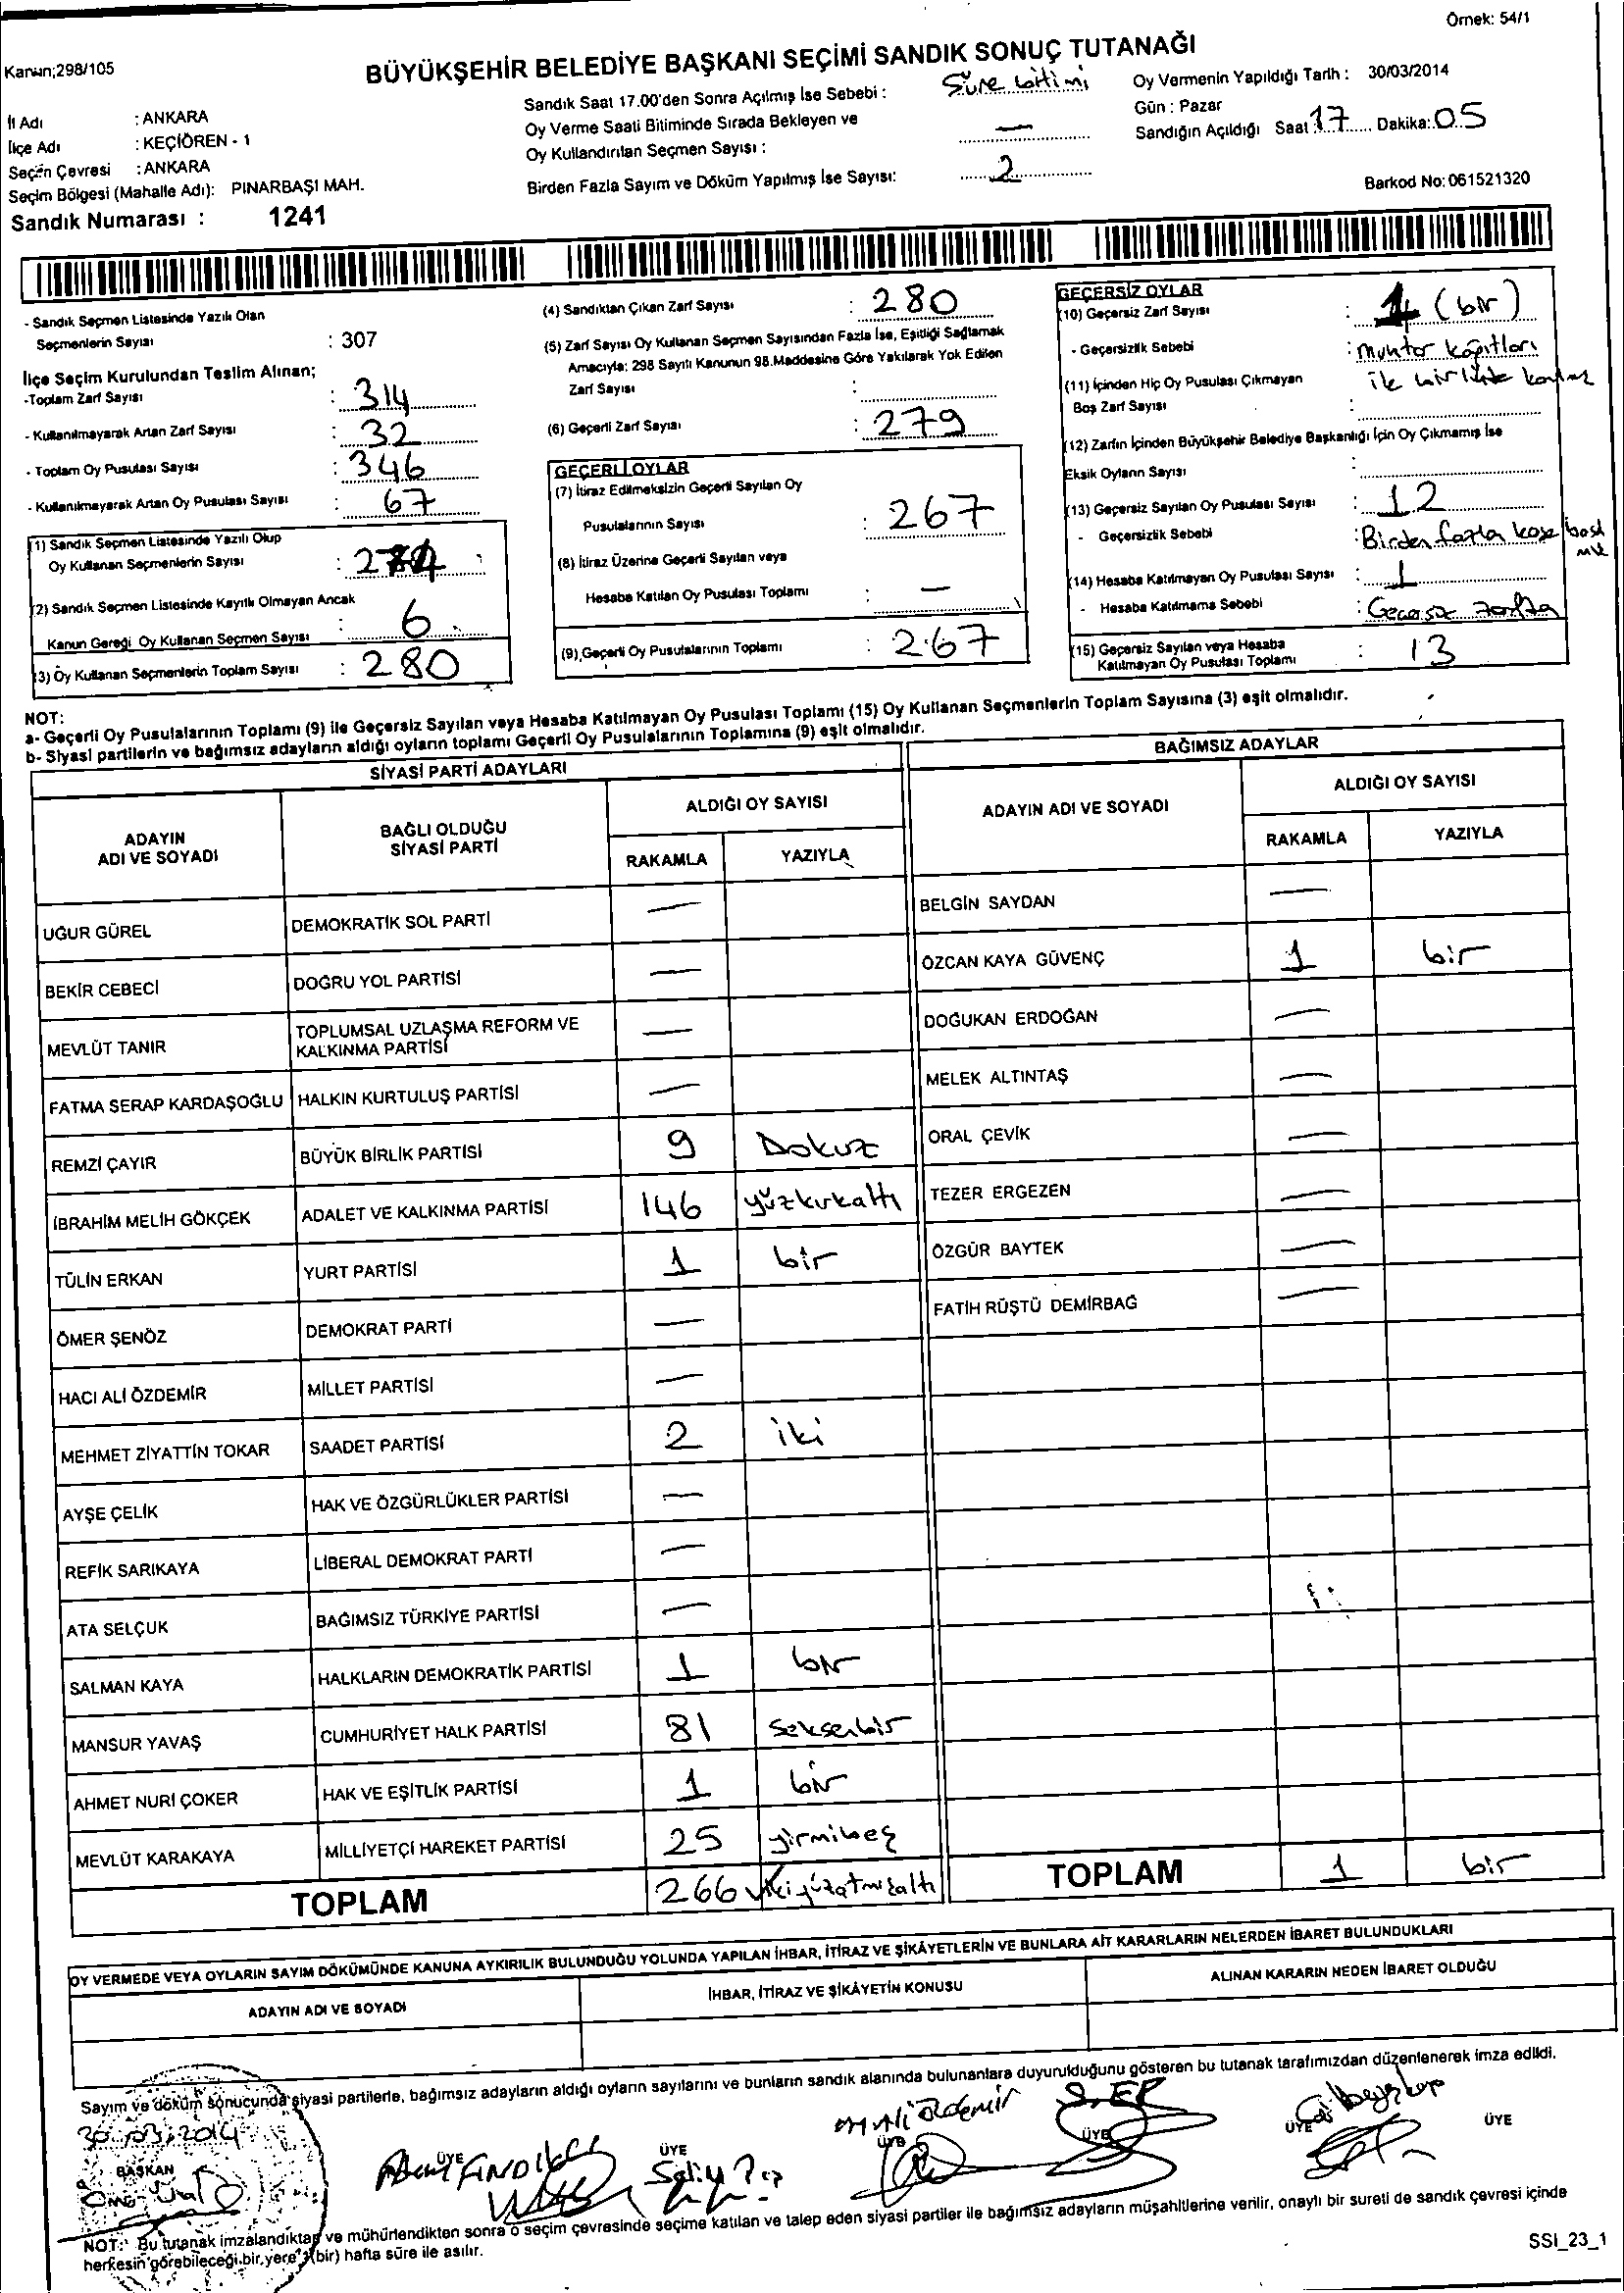 Örnek: 54/1
Kanun;298/105
BÜYÜKŞEHİR BELEDİYE BAŞKANI SEÇİMİ SANDIK SONUÇ TUTANAĞI
İl Adı : ANKARA
İlçe Adı : KEÇİÖREN - 1
Seçim Çevresi : ANKARA
Seçim Bölgesi (Mahalle Adı): PINARBAŞI MAH.
Sandık Numarası : 1241
Sandık Saat 17.00'den Sonra Açılmış İse Sebebi : Süre bitimi
Oy Verme Saati Bitiminde Sırada Bekleyen ve
Oy Kullandırılan Seçmen Sayısı : —
Birden Fazla Sayım ve Döküm Yapılmış İse Sayısı: 2
Oy Vermenin Yapıldığı Tarih : 30/03/2014
Gün : Pazar
Sandığın Açıldığı Saat 17 Dakika: 05
Barkod No: 061521320
- Sandık Seçmen Listesinde Yazılı Olan
Seçmenlerin Sayısı : 307
İlçe Seçim Kurulundan Teslim Alınan;
-Toplam Zarf Sayısı : 314
- Kullanılmayarak Artan Zarf Sayısı : 32
- Toplam Oy Pusulası Sayısı : 346
- Kullanılmayarak Artan Oy Pusulası Sayısı : 67
(1) Sandık Seçmen Listesinde Yazılı Olup
Oy Kullanan Seçmenlerin Sayısı :
(2) Sandık Seçmen Listesinde Kayıtlı Olmayan Ancak
Kanun Gereği Oy Kullanan Seçmen Sayısı : 6
(3) Oy Kullanan Seçmenlerin Toplam Sayısı : 280
(4) Sandıktan Çıkan Zarf Sayısı : 280
(5) Zarf Sayısı Oy Kullanan Seçmen Sayısından Fazla İse, Eşitliği Sağlamak
Amacıyla; 298 Sayılı Kanunun 98.Maddesine Göre Yakılarak Yok Edilen
Zarf Sayısı :
(6) Geçerli Zarf Sayısı : 279
GEÇERLİ OYLAR
(7) İtiraz Edilmeksizin Geçerli Sayılan Oy
Pusulalarının Sayısı : 267
(8) İtiraz Üzerine Geçerli Sayılan veya
Hesaba Katılan Oy Pusulası Toplamı : —
(9) Geçerli Oy Pusulalarının Toplamı : 267
GEÇERSİZ OYLAR
(10) Geçersiz Zarf Sayısı : 1 (bir)
- Geçersizlik Sebebi : muhtar kağıtları
ile birlikte
(11) İçinden Hiç Oy Pusulası Çıkmayan
Boş Zarf Sayısı :
(12) Zarfın İçinden Büyükşehir Belediye Başkanlığı İçin Oy Çıkmamış İse
Eksik Oyların Sayısı :
(13) Geçersiz Sayılan Oy Pusulası Sayısı : 12
- Geçersizlik Sebebi : Birden fazla kaşe
(14) Hesaba Katılmayan Oy Pusulası Sayısı : 1
- Hesaba Katılmama Sebebi : Geçersiz zarfta
(15) Geçersiz Sayılan veya Hesaba
Katılmayan Oy Pusulası Toplamı : 13
NOT:
a- Geçerli Oy Pusulalarının Toplamı (9) ile Geçersiz Sayılan veya Hesaba Katılmayan Oy Pusulası Toplamı (15) Oy Kullanan Seçmenlerin Toplam Sayısına (3) eşit olmalıdır.
b- Siyasi partilerin ve bağımsız adayların aldığı oyların toplamı Geçerli Oy Pusulalarının Toplamına (9) eşit olmalıdır.
SİYASİ PARTİ ADAYLARI
ADAYIN
ADI VE SOYADI
BAĞLI OLDUĞU
SİYASİ PARTİ
ALDIĞI OY SAYISI
RAKAMLA YAZIYLA
UĞUR GÜREL DEMOKRATİK SOL PARTİ —
BEKİR CEBECİ DOĞRU YOL PARTİSİ —
MEVLÜT TANIR TOPLUMSAL UZLAŞMA REFORM VE
KALKINMA PARTİSİ —
FATMA SERAP KARDAŞOĞLU HALKIN KURTULUŞ PARTİSİ —
REMZİ ÇAYIR BÜYÜK BİRLİK PARTİSİ 9 Dokuz
İBRAHİM MELİH GÖKÇEK ADALET VE KALKINMA PARTİSİ 146 yüzkırkaltı
TÜLİN ERKAN YURT PARTİSİ 1 bir
ÖMER ŞENÖZ DEMOKRAT PARTİ —
HACI ALİ ÖZDEMİR MİLLET PARTİSİ —
MEHMET ZİYATTİN TOKAR SAADET PARTİSİ 2 iki
AYŞE ÇELİK HAK VE ÖZGÜRLÜKLER PARTİSİ —
REFİK SARIKAYA LİBERAL DEMOKRAT PARTİ —
ATA SELÇUK BAĞIMSIZ TÜRKİYE PARTİSİ —
SALMAN KAYA HALKLARIN DEMOKRATİK PARTİSİ 1 bir
MANSUR YAVAŞ CUMHURİYET HALK PARTİSİ 81 seksenbir
AHMET NURİ ÇOKER HAK VE EŞİTLİK PARTİSİ 1 bir
MEVLÜT KARAKAYA MİLLİYETÇİ HAREKET PARTİSİ 25 yirmibeş
TOPLAM 266 ikiyüzatmışaltı
BAĞIMSIZ ADAYLAR
ADAYIN ADI VE SOYADI
ALDIĞI OY SAYISI
RAKAMLA YAZIYLA
BELGİN SAYDAN —
ÖZCAN KAYA GÜVENÇ 1 bir
DOĞUKAN ERDOĞAN —
MELEK ALTINTAŞ —
ORAL ÇEVİK —
TEZER ERGEZEN —
ÖZGÜR BAYTEK —
FATİH RÜŞTÜ DEMİRBAĞ —
TOPLAM 1 bir
OY VERMEDE VEYA OYLARIN SAYIM DÖKÜMÜNDE KANUNA AYKIRILIK BULUNDUĞU YOLUNDA YAPILAN İHBAR, İTİRAZ VE ŞİKÂYETLERİN VE BUNLARA AİT KARARLARIN NELERDEN İBARET BULUNDUKLARI
ADAYIN ADI VE SOYADI
İHBAR, İTİRAZ VE ŞİKÂYETİN KONUSU
ALINAN KARARIN NEDEN İBARET OLDUĞU
Sayım ve döküm sonucunda siyasi partilerle, bağımsız adayların aldığı oyların sayılarını ve bunların sandık alanında bulunanlara duyurulduğunu gösteren bu tutanak tarafımızdan düzenlenerek imza edildi.
30.03.2014
BAŞKAN ÜYE ÜYE ÜYE ÜYE ÜYE ÜYE
NOT: Bu tutanak imzalandıktan ve mühürlendikten sonra o seçim çevresinde seçime katılan ve talep eden siyasi partiler ile bağımsız adayların müşahitlerine verilir, onaylı bir sureti de sandık çevresi içinde
herkesin görebileceği bir yere 1 (bir) hafta süre ile asılır.
SSI_23_1